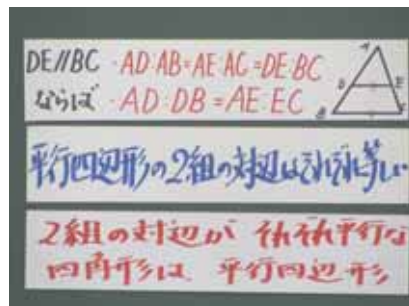 DE//BC ・AD:AB=AE:AC=DE:BC
ならば ・AD:DB=AE:EC
A
D E
B C
平行四辺形の2組の対辺はそれぞれ等しい
2組の対辺が それぞれ平行な
四角形は 平行四辺形